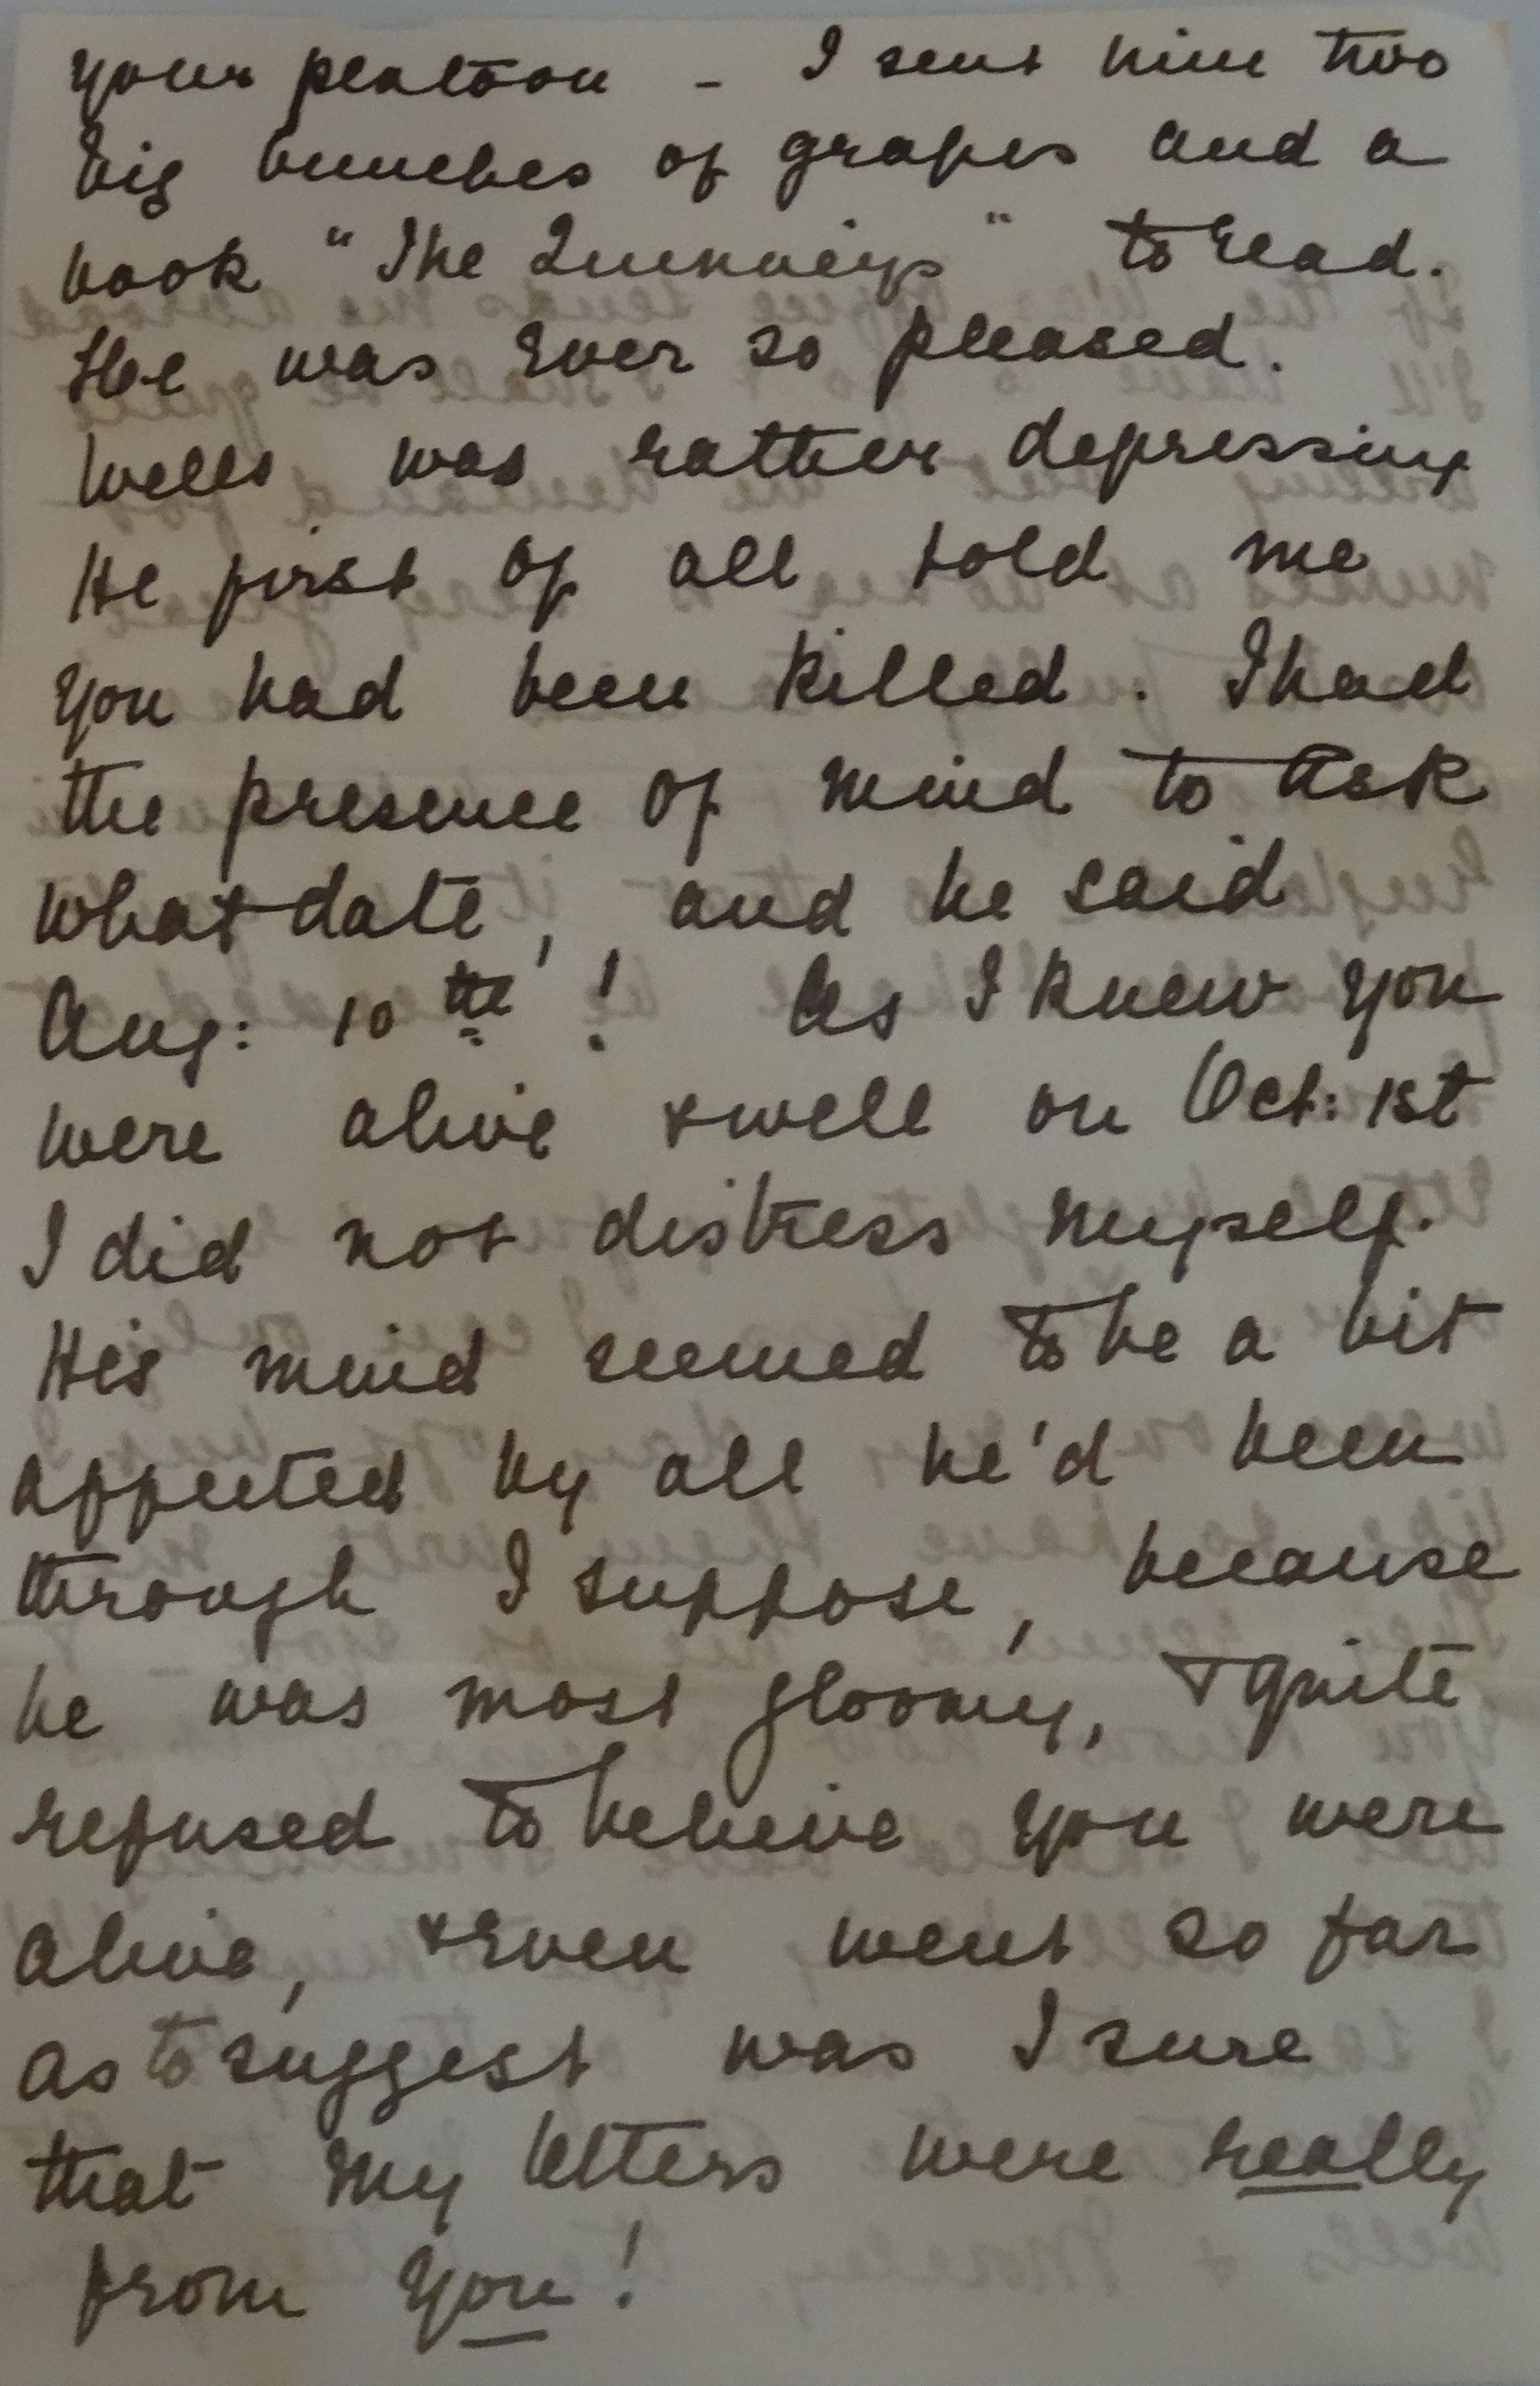 your platoon - I sent him two
big bunches of grapes and a
book "The Quinneys" to read.
He was ever so pleased.
Wells was rather depressing
He first of all told me
you had been killed. I had
the presence of mind to ask
what date, and he said
Aug: 10th! As I knew you
were alive & well on Oct: 1st
I did not distress myself.
His mind seemed to be a bit
affected by all he'd been
through I suppose, because
he was most gloomy, & quite
refused to believe you were
alive, & even went so far
as to suggest was I sure
that my letters were really
from you!